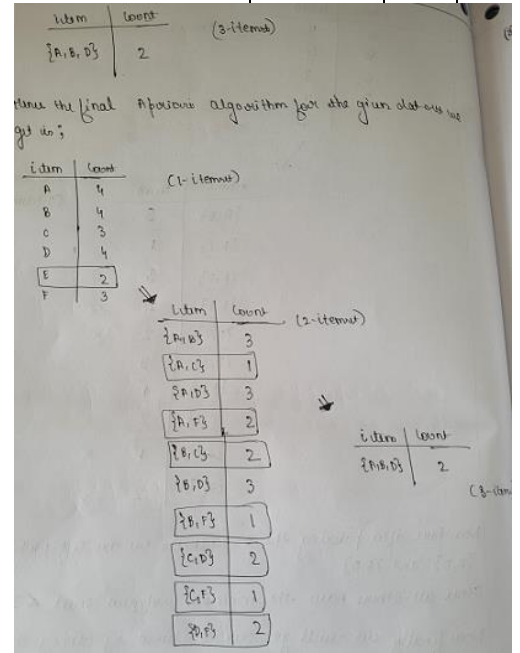 item | Count
{A, B, D} | 2
(3-itemset)
Hence the final Apriori algorithm for the given dataset we
get is;
item | Count
A | 4
B | 4
C | 3
D | 4
E | 2
F | 3
(1-itemset)
item | Count
{A, B} | 3
{A, C} | 1
{A, D} | 3
{A, F} | 2
{B, C} | 2
{B, D} | 3
{B, F} | 1
{C, D} | 2
{C, F} | 1
{D, F} | 2
(2-itemset)
item | Count
{A, B, D} | 2
(3-item